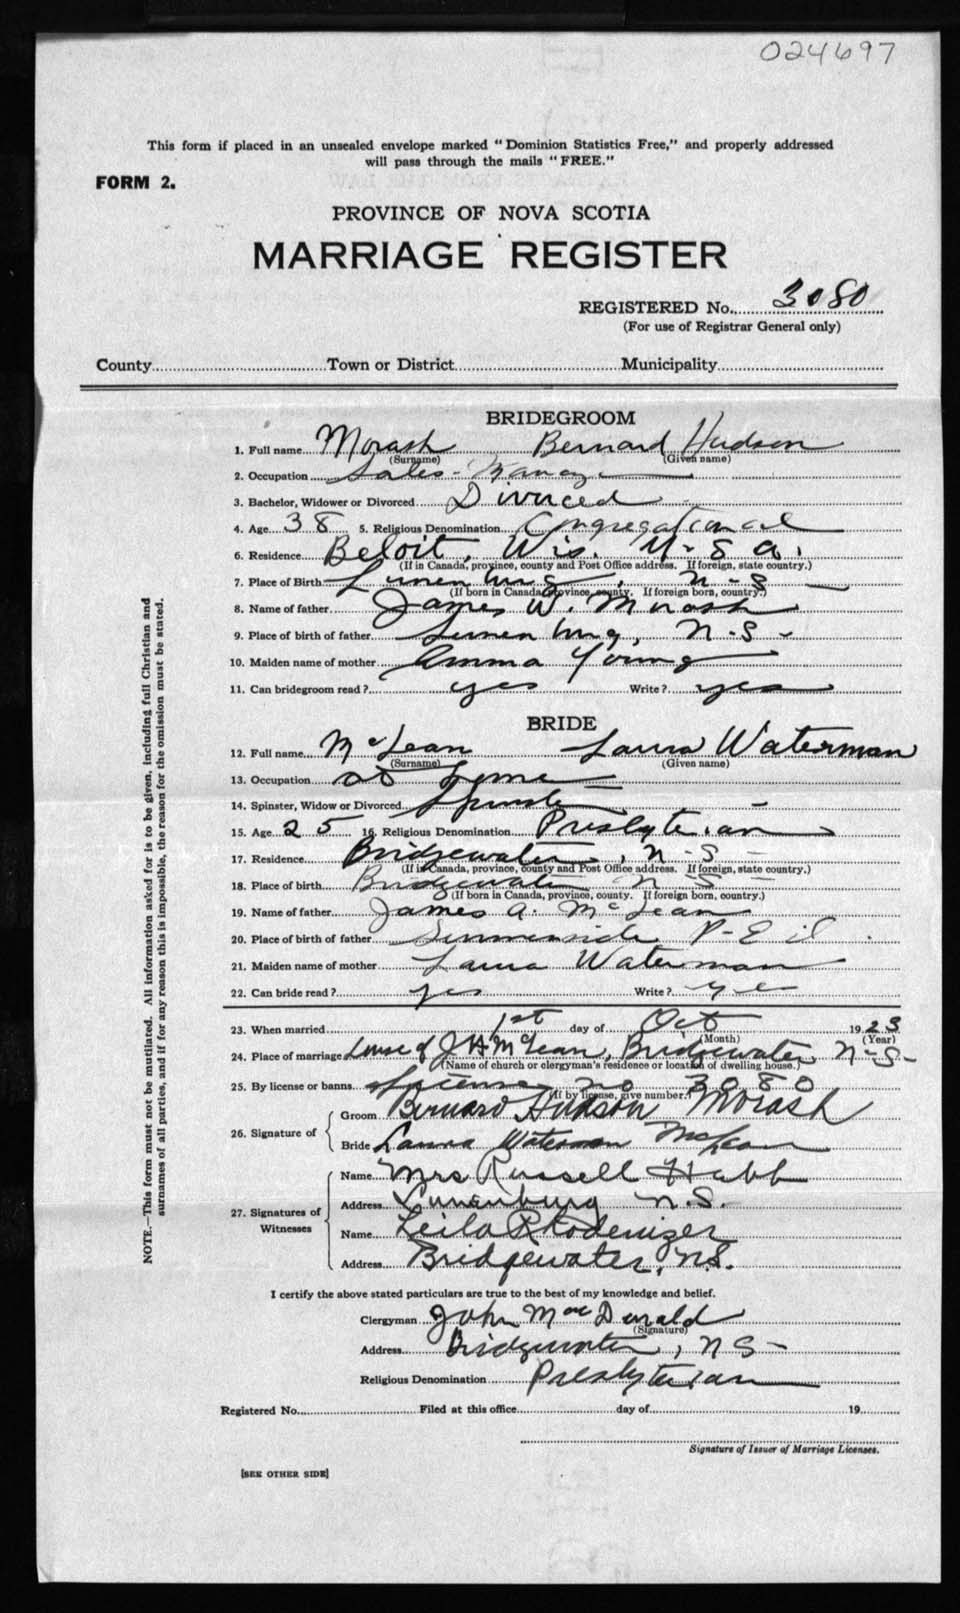 024697
This form if placed in an unsealed envelope marked "Dominion Statistics Free," and properly addressed
will pass through the mails "FREE."
FORM 2.
PROVINCE OF NOVA SCOTIA
MARRIAGE REGISTER
REGISTERED No. 3080
(For use of Registrar General only)
County Town or District Municipality
BRIDEGROOM
1. Full name Morash Bernard Hudson
(Surname) (Given name)
2. Occupation Sales-Manager
3. Bachelor, Widower or Divorced Divorced
4. Age 38 5. Religious Denomination Congregational
6. Residence Beloit, Wis. U-S a.
(If in Canada, province, county and Post Office address. If foreign, state country.)
7. Place of Birth Lunenburg, N-S
(If born in Canada, province, county. If foreign born, country.)
8. Name of father James W. Morash
9. Place of birth of father Lunenburg, N.S-
10. Maiden name of mother Amma Young
11. Can bridegroom read? yes Write? yes
BRIDE
12. Full name McLean Laura Waterman
(Surname) (Given name)
13. Occupation at home
14. Spinster, Widow or Divorced Spinster
15. Age 25 16. Religious Denomination Presbyterian
17. Residence Bridgewater, N-S-
(If in Canada, province, county and Post Office address. If foreign, state country.)
18. Place of birth Bridgewater N-S-
(If born in Canada, province, county. If foreign born, country.)
19. Name of father James A. McLean
20. Place of birth of father Summerside P-E il
21. Maiden name of mother Laura Waterman
22. Can bride read? yes Write? yes
23. When married 1st day of Oct 1923
(Month) (Year)
24. Place of marriage house of J H McLean, Bridgewater N-S-
(Name of church or clergyman's residence or location of dwelling house.)
25. By license or banns License no 3080
(If by license, give number.)
26. Signature of
Groom Bernard Hudson Morash
Bride Laura Waterman McLean
27. Signatures of Witnesses
Name Mrs Russell Hebb
Address Lunenburg N.S.
Name Leila Rhodenizer
Address Bridgewater, N.S.
I certify the above stated particulars are true to the best of my knowledge and belief.
Clergyman John MacDonald
(Signature)
Address Bridgewater, N S-
Religious Denomination Presbyterian
Registered No. Filed at this office day of 19
Signature of Issuer of Marriage Licenses.
[SEE OTHER SIDE]
NOTE.—This form must not be mutilated. All information asked for is to be given, including full Christian and
surnames of all parties, and if for any reason this is impossible, the reason for the omission must be stated.